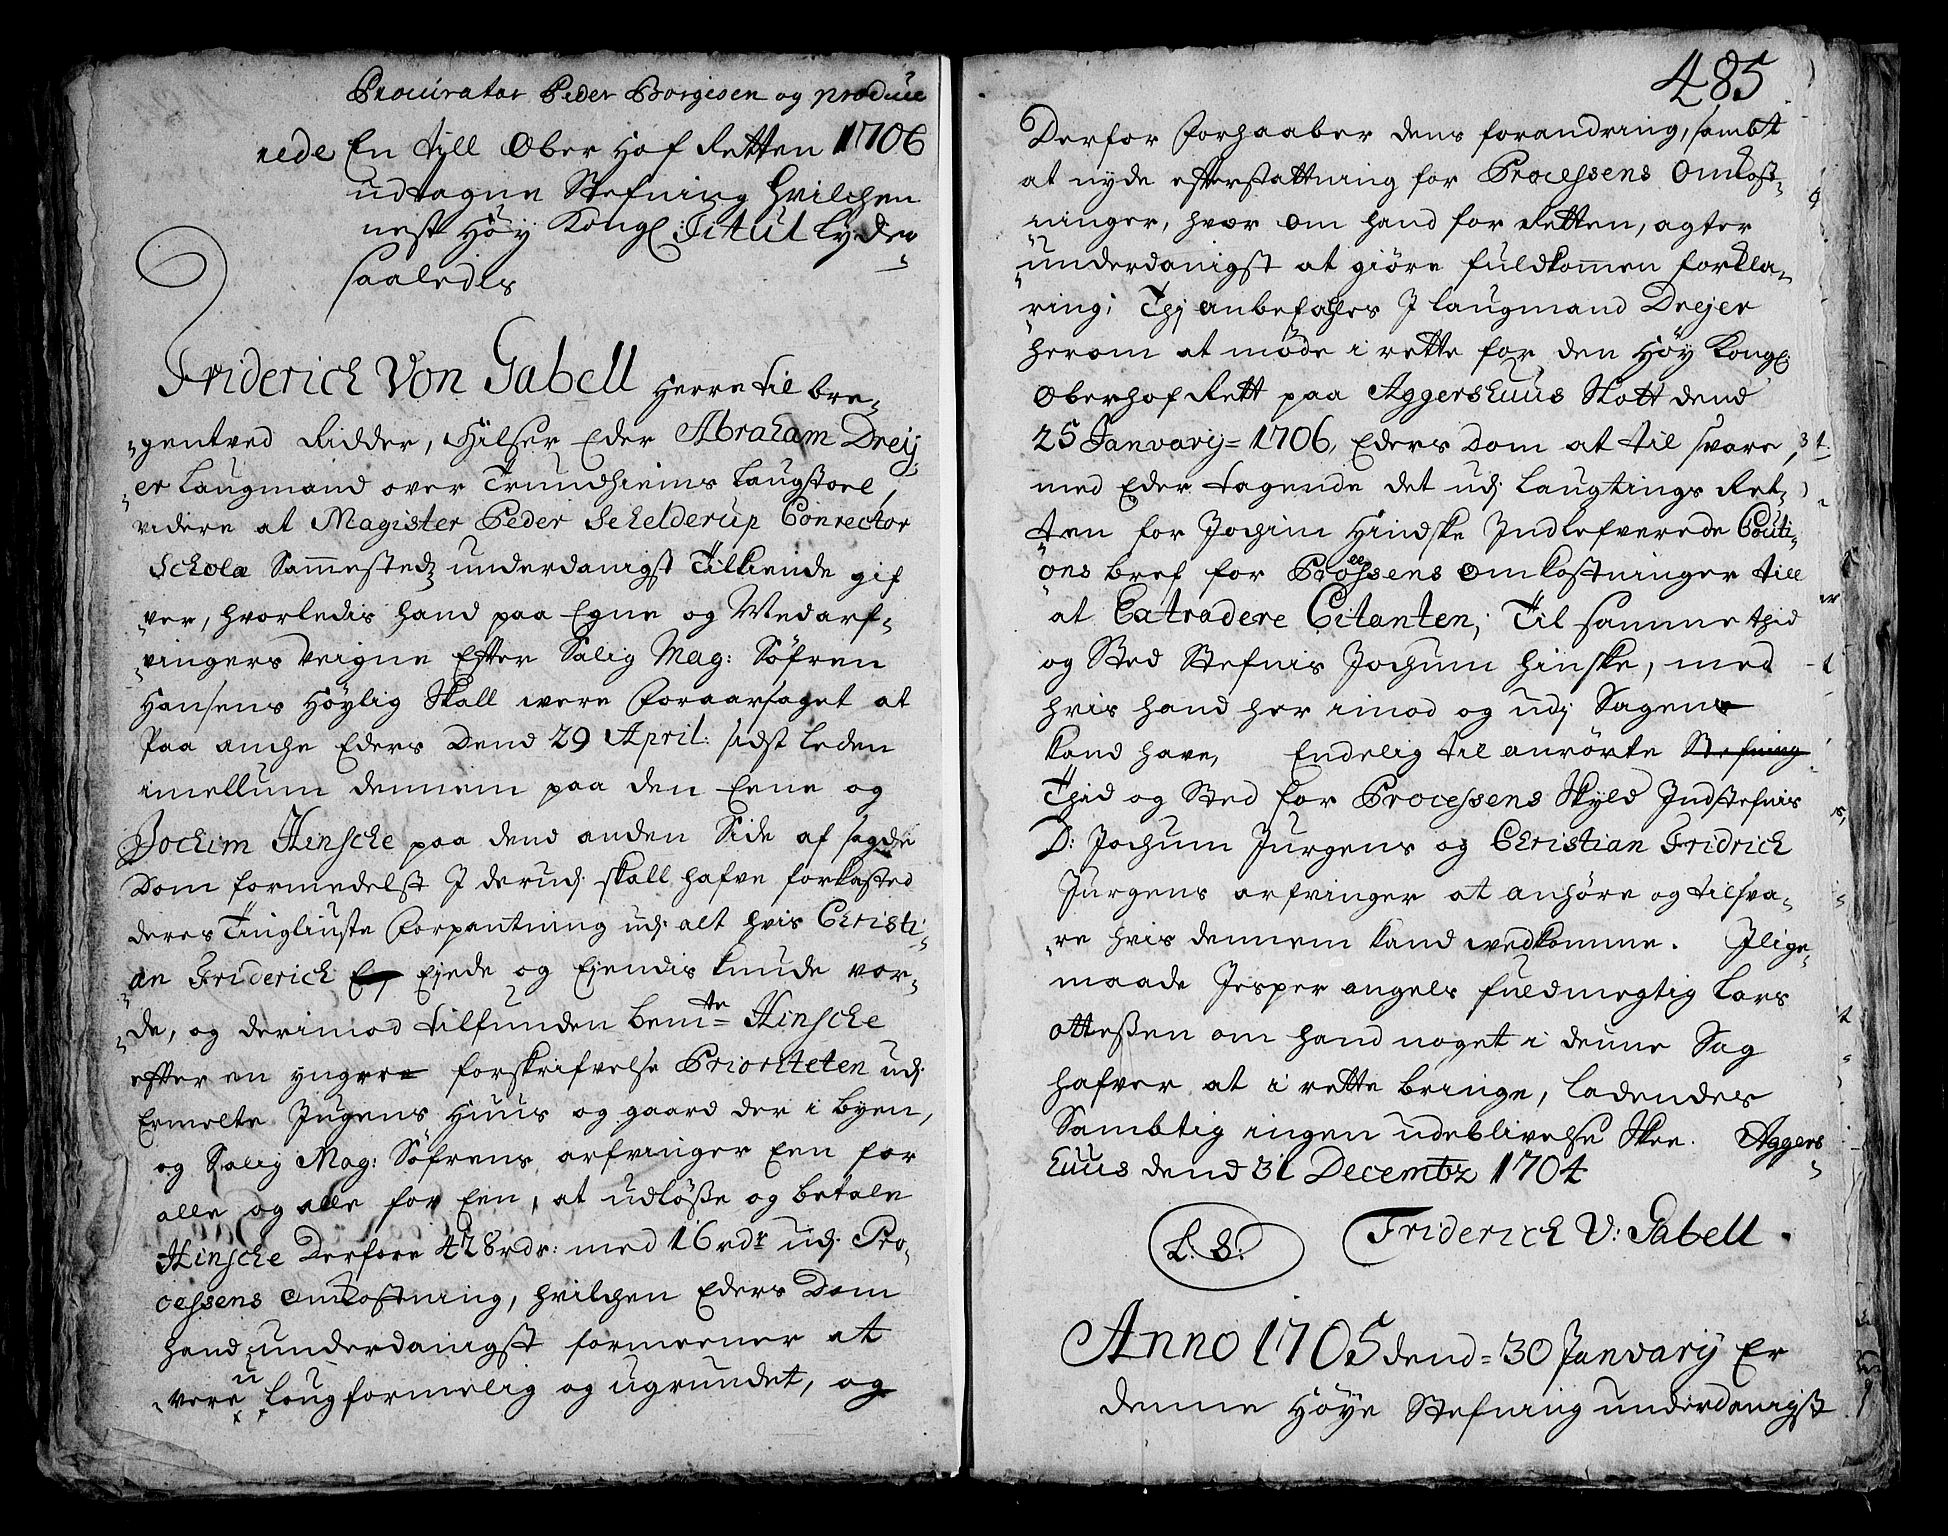 Procurator Peder Borgesen og produce
rede En till Ober Hof Retten 1706
udtagne Stefning hvilchen
nest Höy Kongl: Titul lyder
saaledis
Friderich Von Gabell Herre til bre„
„gentved Ridder, Hilser Eder Abraham Dreij„
„er Laugmand over Trundhiems Laugstoel,
videre at Magister Peder Schelderup Conrector
Schola Sammestedz underdanigst Tilkiende gif
„ver, hvorledis hand paa Egne og Medarf„
„vingers Veigne Efter Salig Mag: Söfren
Hansens Höylig Skall were Foraarsaget at
Paa anche Eders Dend 29 April: sidst leden
imellum dennem paa den Eene og
Jochim Hinsche paa dend anden Side af sagde
Dom formedelst J derudj skall hafve forkasted
deres Tingliuste Forpantning udj alt hvis Christi„
„an Friderich Ejede og Ejendis kunde vor„
„de, og derimod tilfunden bemte Hinsche
efter en yngere forskrifvelse Prioriteten udj
Ermelte Jugens Huus og gaard der i byen,
og Salig Mag: Söfrens arfvinger Een for
alle og alle for Een, at udlöße og betale
Hinsche Derfore 428 rdr: med 16 rdr udj Pro„
cessens omkostning, hvilchen Eders Dom
hand underdanigst formeener at
„vere u Lougformelig og ugrundet, og
485
Derfor Forhaaber dens forandring, sambt
at nyde efterstattning for Processens Omkost„
„ninger, hvor om hand for Retten, agter
underdanigst at giöre fuldkommen forkla„
„ring; Thj anbefahles J laugmand Drejer
herom at möde i rette for den Höy Kongl
Oberhof Rett paa Aggershuus Slott dend
25 Janvarij= 1706, Eders Dom at til svare,
med Eder tagende det udj Laugtings Ret„
„ten for Jochim Hindske Indlefverede Couti„
„ons bref for Processens omkostninger till
at Extradere Citanten; Til samme thid
og Sted Stefnis Jochum Hinske, med
hvis hand her imod og udj Sagen
kand have, Endelig til anrörte Stefning
Thid og Sted for Processens Skyld Indstefnis
D: Jochum Jurgens og Christian Fridrich
Jurgens arfvinger at anhöre og tilsva„
„re hvis dennem kand vedkomme. Jlige„
maade Jesper angels fuldmegtig Lars
otteßen om hand noget i denne Sag
hafver at i rette bringe, ladendes
Sambtig ingen udeblivelse Skee. Aggers
huus dend 31 Decembr 1704
L. S: Friderich V: Gabell.
Anno 1705 dend= 30 Janvarij Er
denne Höye Stefning underdanigst